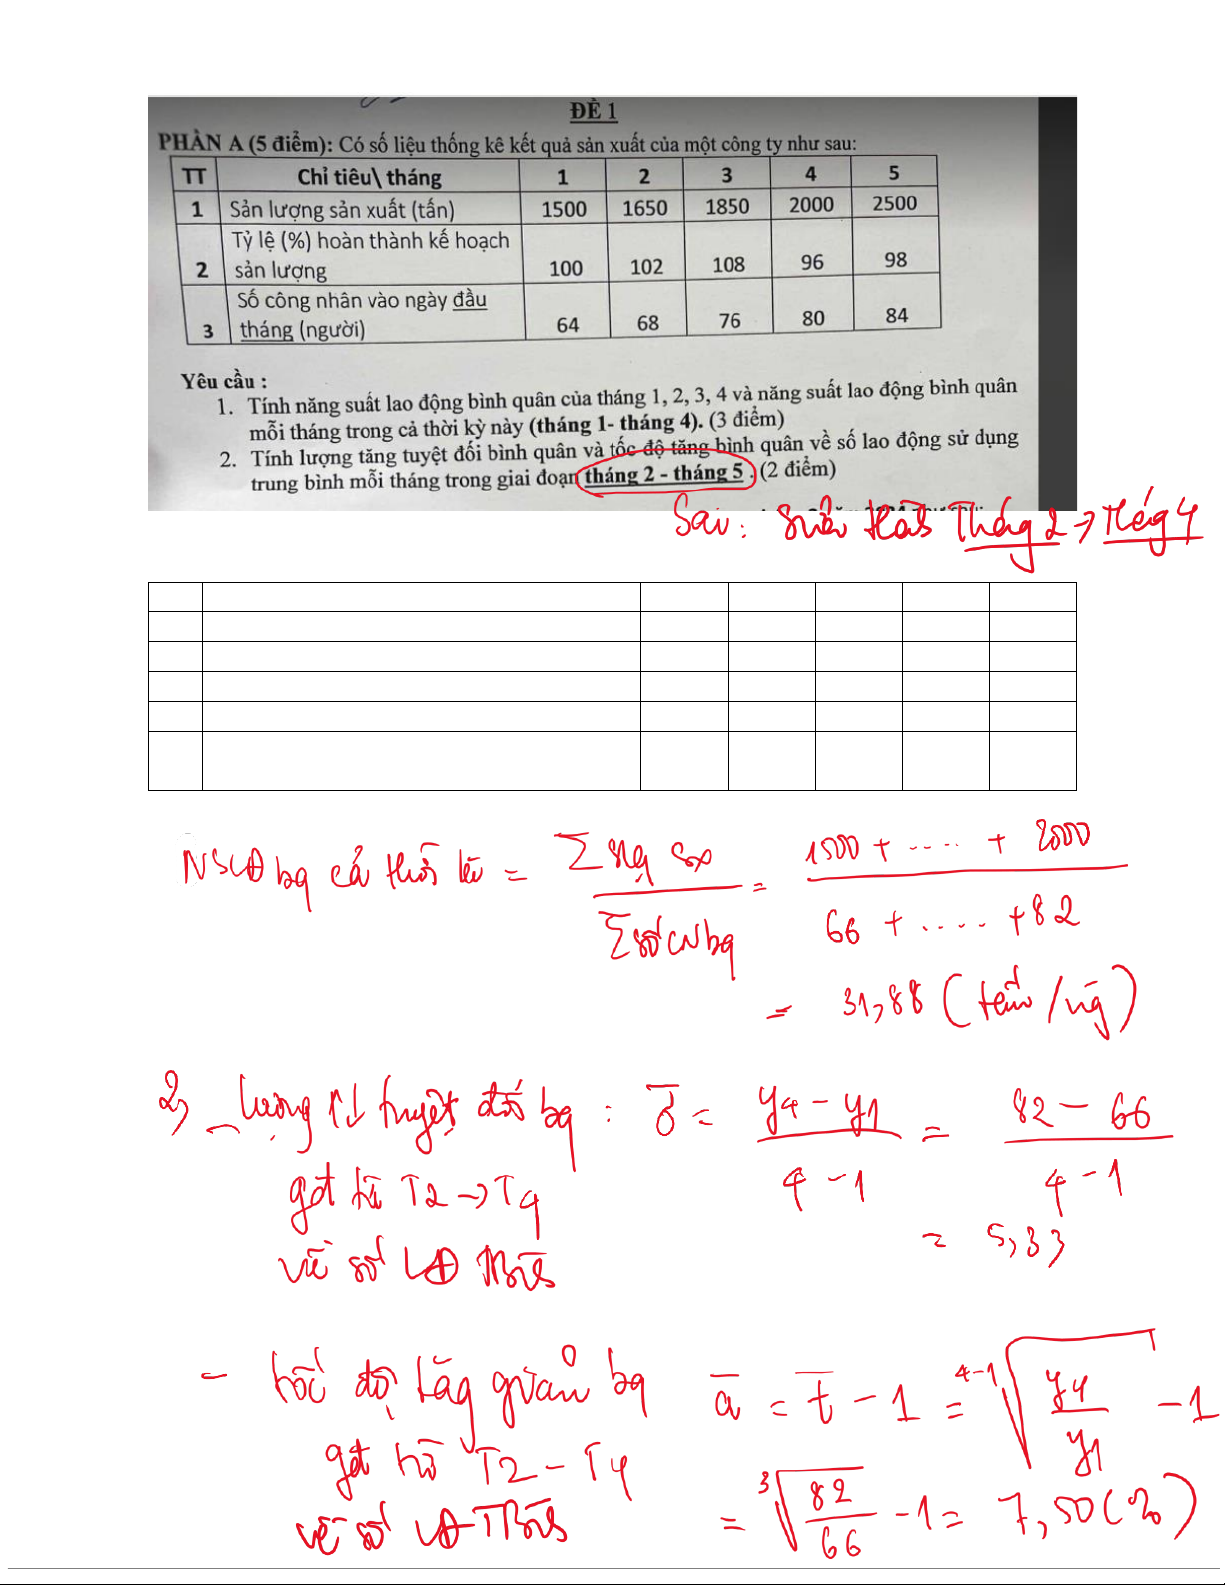 ĐỀ 1
PHẦN A (5 điểm): Có số liệu thống kê kết quả sản xuất của một công ty như sau:
TT Chỉ tiêu\ tháng 1 2 3 4 5
1 Sản lượng sản xuất (tấn) 1500 1650 1850 2000 2500
Tỷ lệ (%) hoàn thành kế hoạch
2 sản lượng 100 102 108 96 98
Số công nhân vào ngày đầu
3 tháng (người) 64 68 76 80 84
Yêu cầu :
1. Tính năng suất lao động bình quân của tháng 1, 2, 3, 4 và năng suất lao động bình quân
mỗi tháng trong cả thời kỳ này (tháng 1- tháng 4). (3 điểm)
2. Tính lượng tăng tuyệt đối bình quân và tốc độ tăng bình quân về số lao động sử dụng
trung bình mỗi tháng trong giai đoạn tháng 2 - tháng 5 . (2 điểm)
Sai: Tháng 2 → Tháng 4
NSLĐ bq cả thời kì = Σ sx / Σ số CN bq = 1500 + .... + 2000 / 66 + ..... + 82
= 31,88 (tấn/ng)
2) - lượng tuyệt đối bq : δ̅ = y4 - y1 / 4 - 1 = 82 - 66 / 4 - 1
gđ từ T2 → T4
= 5,33
về số LĐ
- tốc độ tăng giảm bq a̅ = t̅ - 1 = ⁴⁻¹√(y4 / y1) - 1
gđ từ T2 - T4
về số LĐ = ³√(82 / 66) - 1 = 7,50 (%)